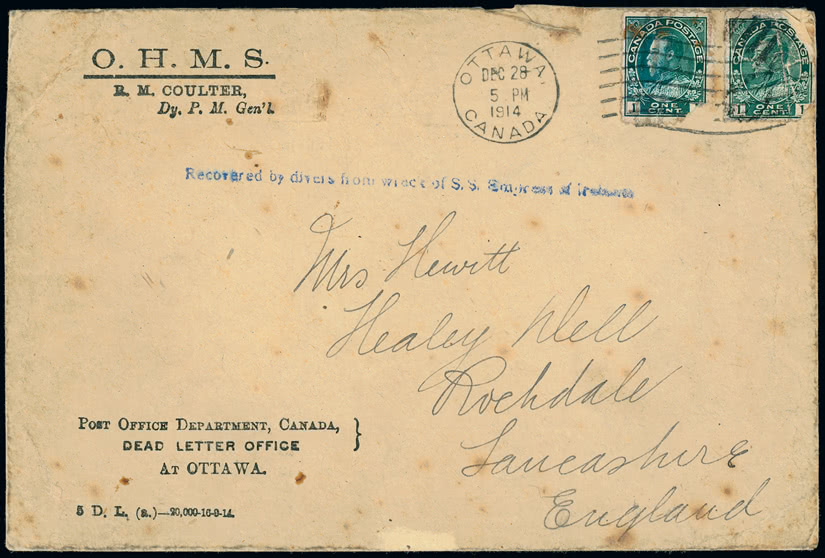 O. H. M. S.
R. M. COULTER,
Dy. P. M. Gen'l.
OTTAWA,
DEC 28
5 PM
1914
CANADA
CANADA POSTAGE
1 ONE CENT
CANADA POSTAGE
1 ONE CENT. 1
Recovered by divers from wreck of S. S. Empress of Ireland
Mrs Hewitt
Healey Dell
Rochdale
Lancashire
England
POST OFFICE DEPARTMENT, CANADA,
DEAD LETTER OFFICE
AT OTTAWA.
5 D. L. (a.)—20,000-16-9-14.